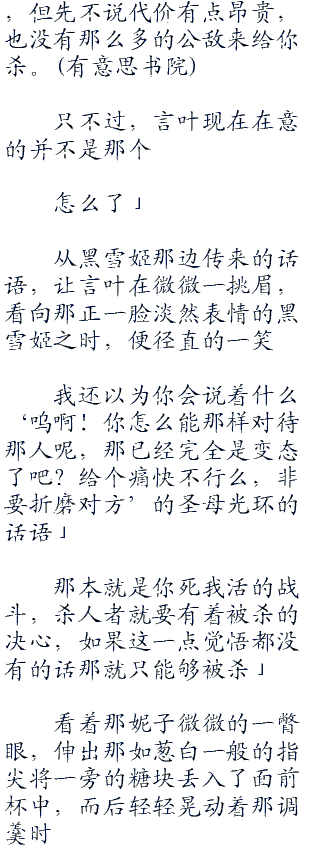 ，但先不说代价有点昂贵，
也没有那么多的公敌来给你
杀。(有意思书院)
只不过，言叶现在在意
的并不是那个
怎么了」
从黑雪姬那边传来的话
语，让言叶在微微一挑眉，
看向那正一脸淡然表情的黑
雪姬之时，便径直的一笑
我还以为你会说着什么
‘呜啊！你怎么能那样对待
那人呢，那已经完全是变态
了吧？给个痛快不行么，非
要折磨对方’的圣母光环的
话语」
那本就是你死我活的战
斗，杀人者就要有着被杀的
决心，如果这一点觉悟都没
有的话那就只能够被杀」
看着那妮子微微的一瞥
眼，伸出那如葱白一般的指
尖将一旁的糖块丢入了面前
杯中，而后轻轻晃动着那调
羹时